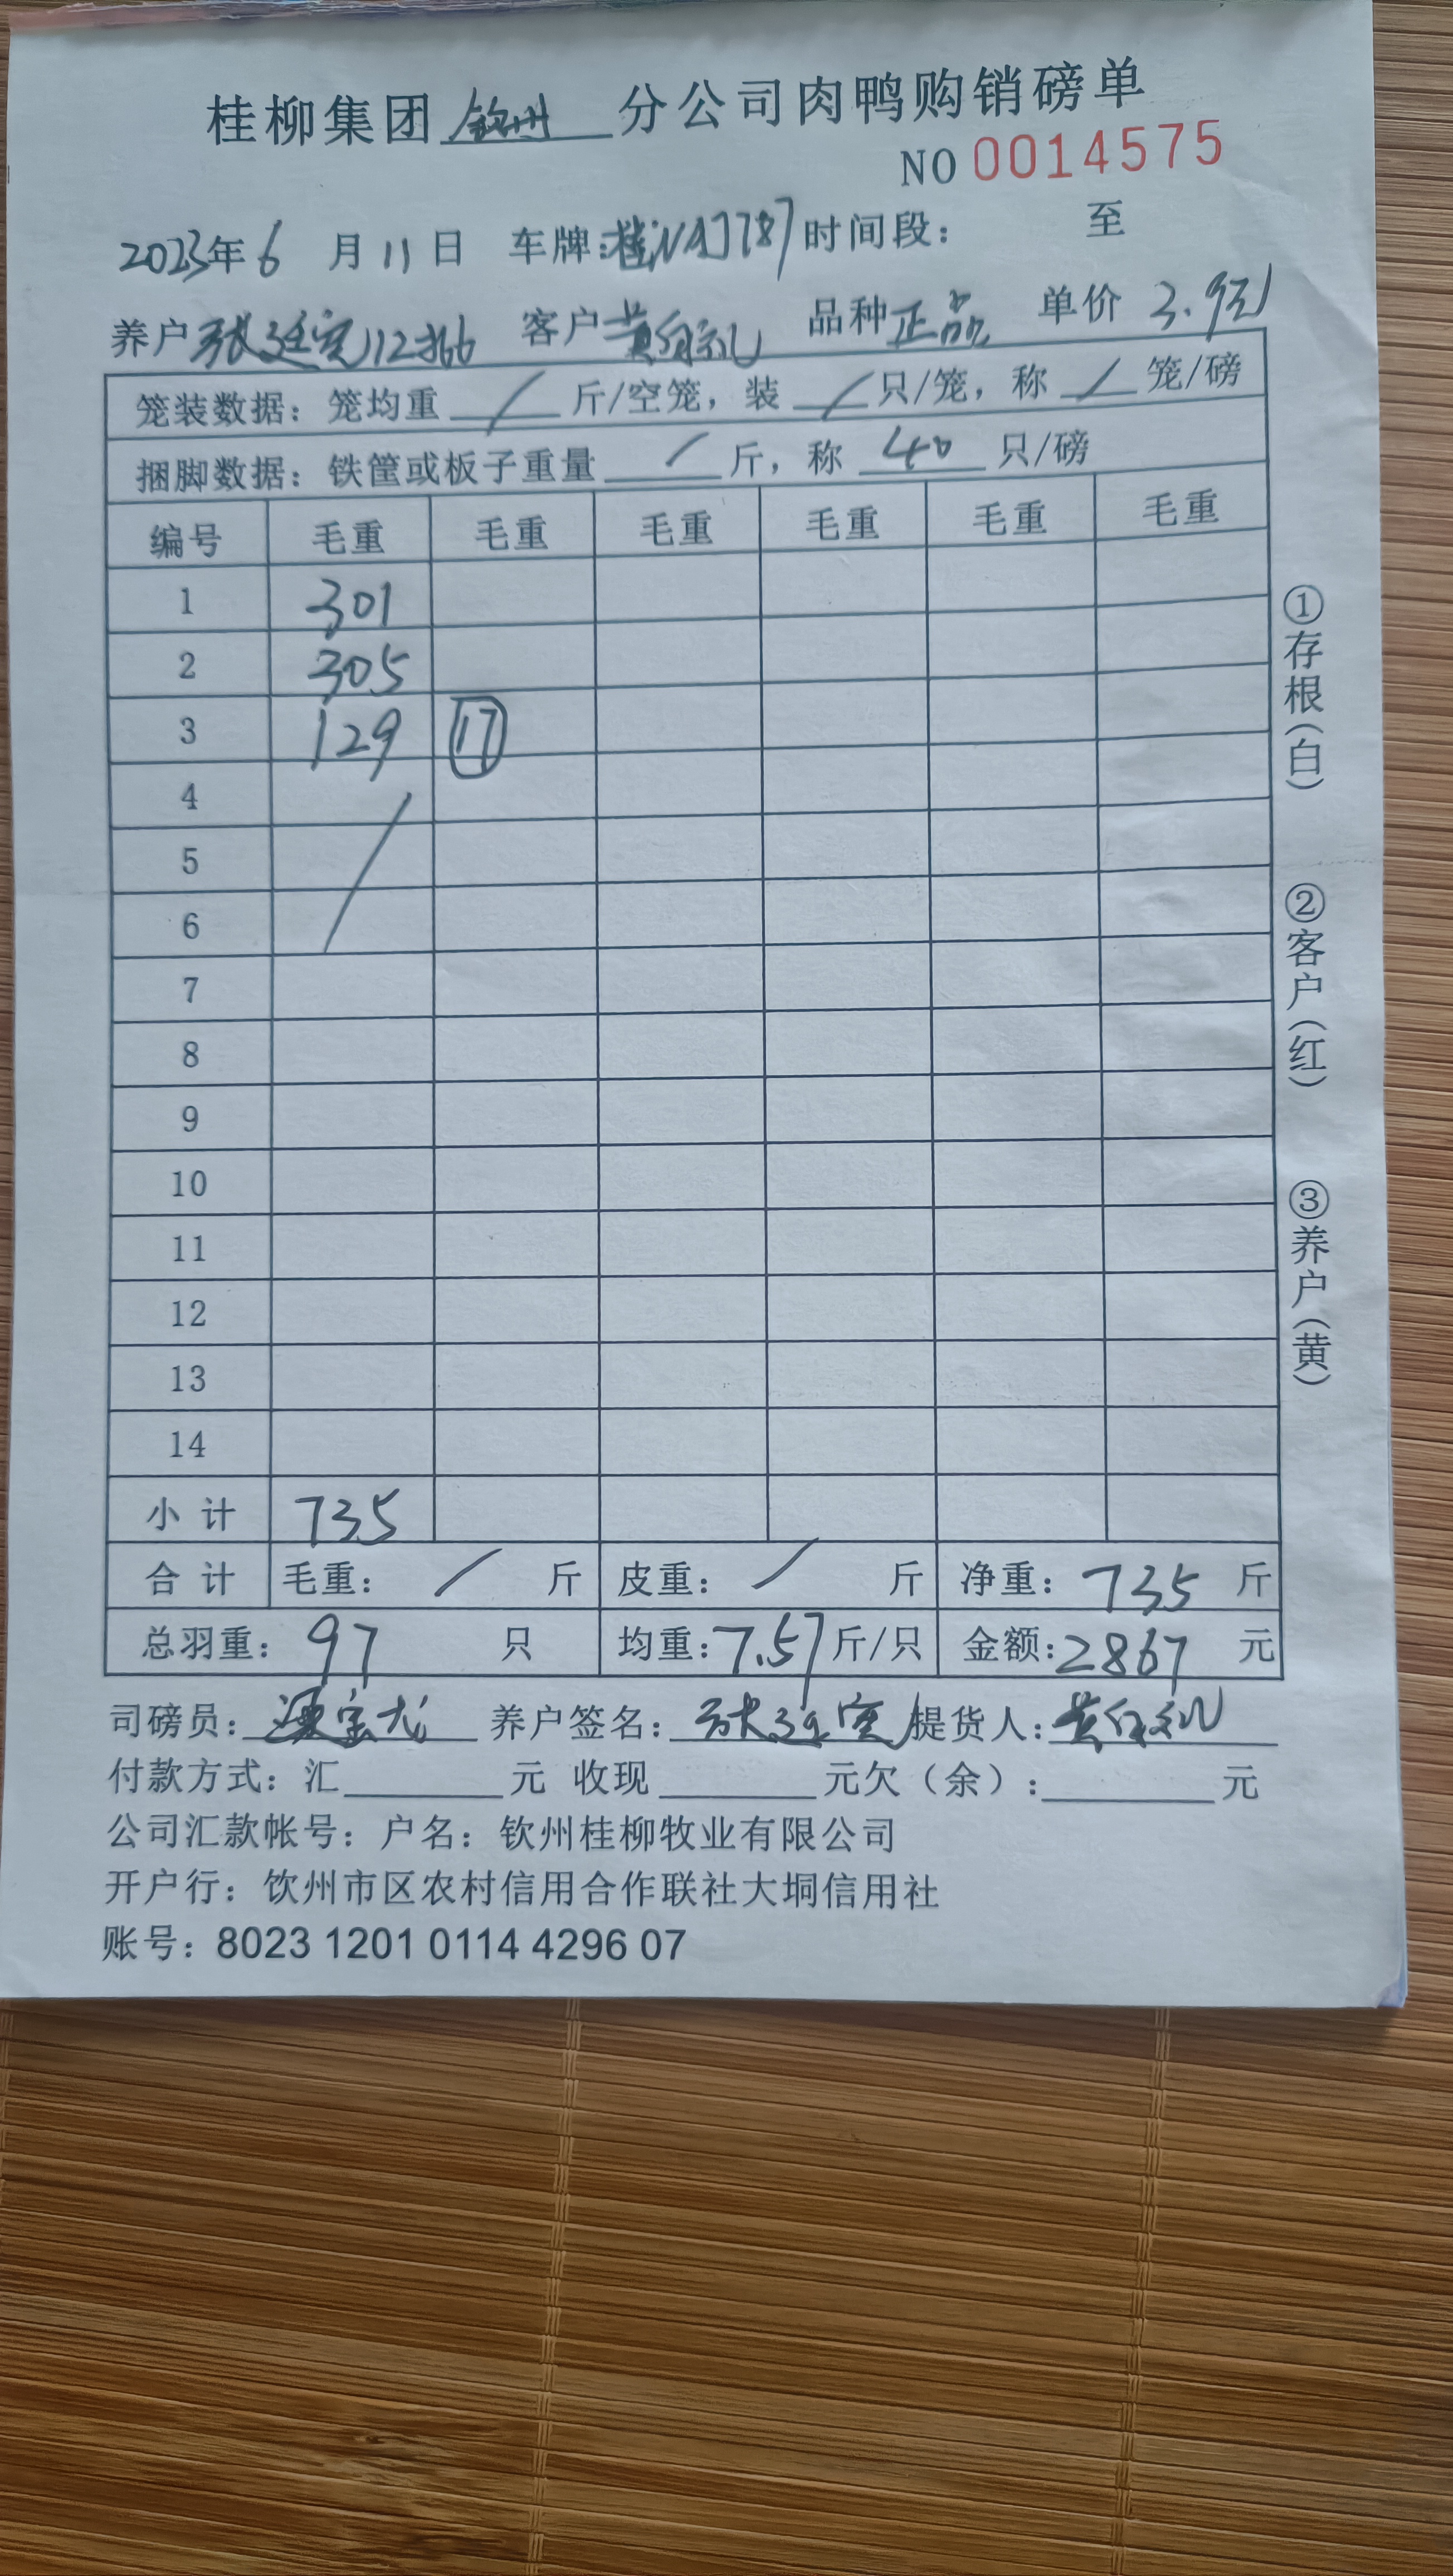 桂柳集团钦州分公司肉鸭购销磅单
NO 0014575
2023年6月11日 车牌:桂NAJ787 时间段: 至
养户张廷宾112批 客户黄 礼 品种正品 单价3.9元
笼装数据:笼均重 / 斤/空笼,装 / 只/笼,称 / 笼/磅
捆脚数据:铁筐或板子重量 / 斤,称 40 只/磅
编号 毛重 毛重 毛重 毛重 毛重 毛重
1 301
2 305
3 129 17
4 /
5
6
7
8
9
10
11
12
13
14
小 计 735
合 计 毛重: / 斤 皮重: / 斤 净重:735 斤
总羽重:97 只 均重:7.57斤/只 金额:2867 元
司磅员: 宝龙 养户签名:张廷宾 提货人:黄 礼
付款方式:汇 元 收现 元欠(余): 元
公司汇款帐号:户名:钦州桂柳牧业有限公司
开户行:饮州市区农村信用合作联社大垌信用社
账号:8023 1201 0114 4296 07
①存根(白)
②客户(红)
③养户(黄)